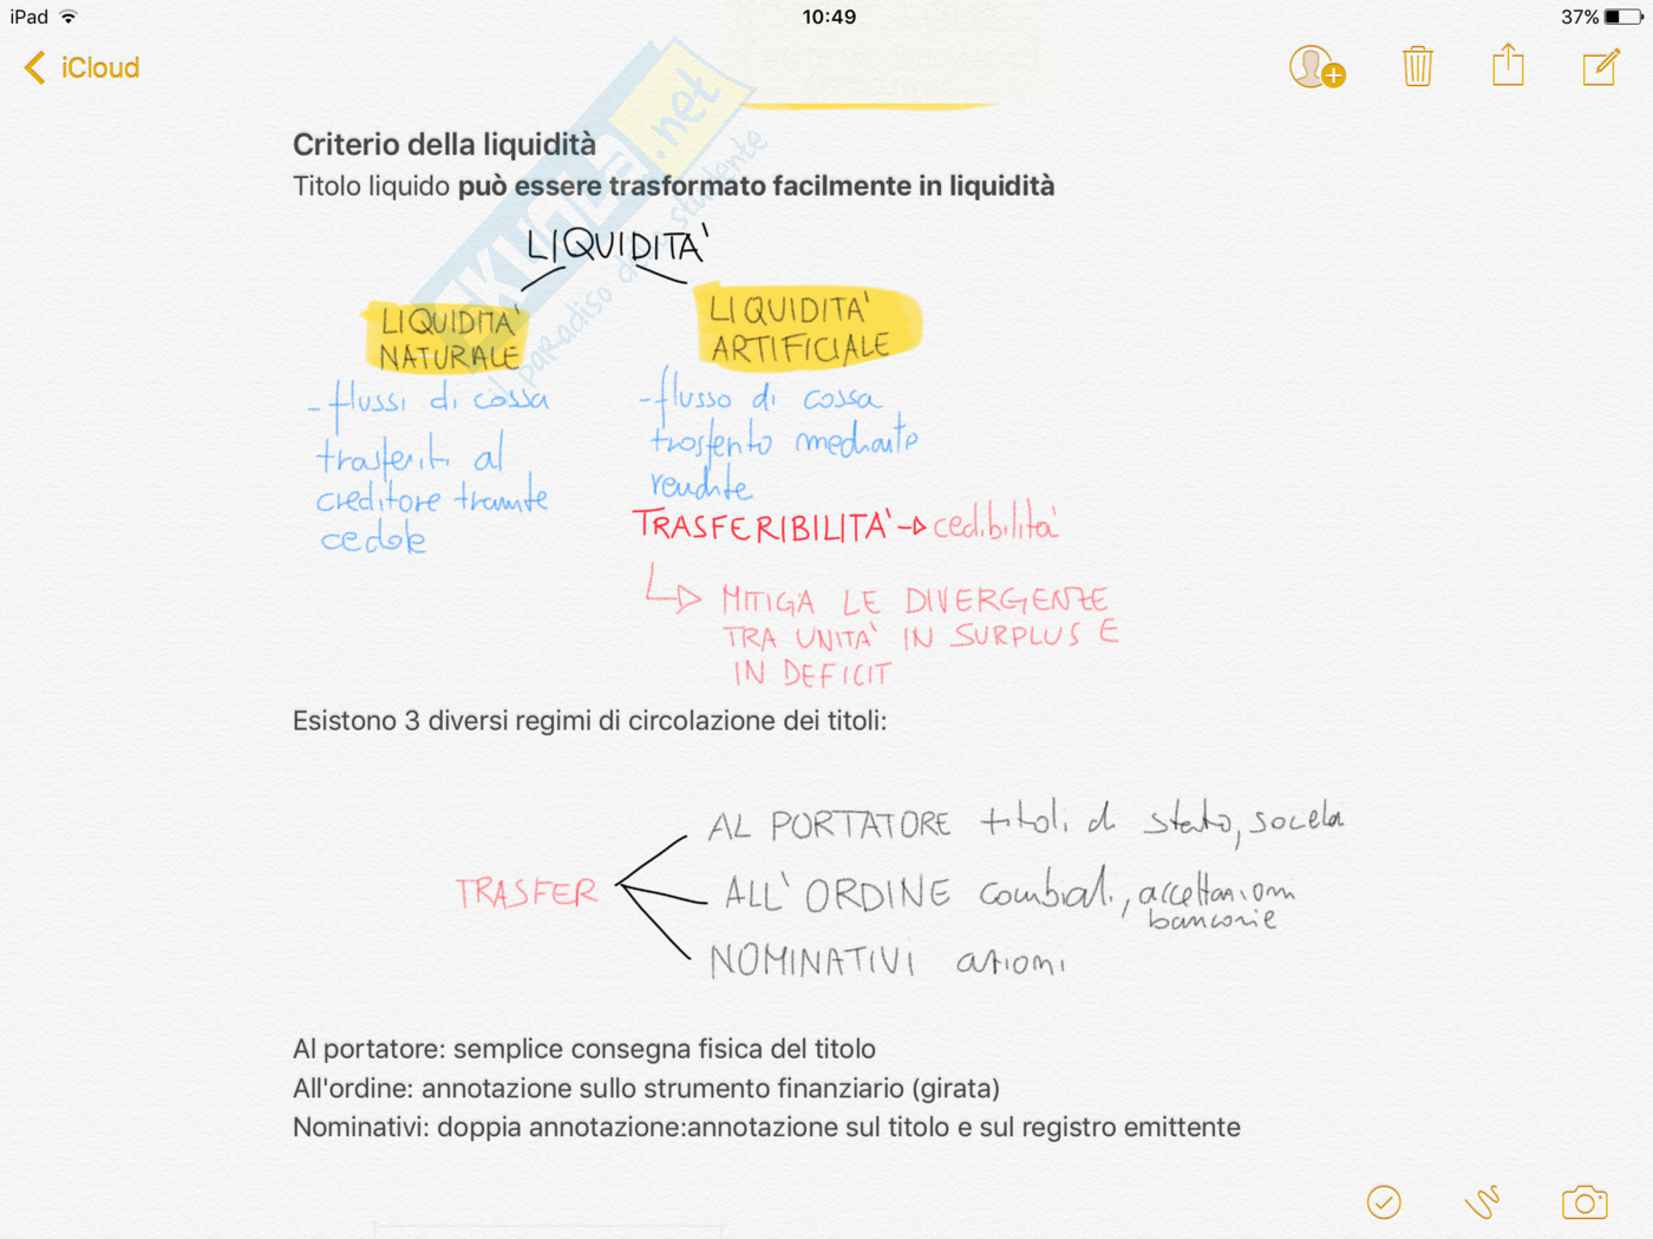 iPad
10:49
37%
iCloud
Criterio della liquidità
Titolo liquido può essere trasformato facilmente in liquidità
LIQUIDITA'
LIQUIDITA'
NATURALE
- flussi di cassa
trasferiti al
creditore tramite
cedole
LIQUIDITA'
ARTIFICIALE
- flusso di cassa
trasferito mediante
rendite
TRASFERIBILITA' → cedibilità
MITIGA LE DIVERGENZE
TRA UNITA' IN SURPLUS E
IN DEFICIT
Esistono 3 diversi regimi di circolazione dei titoli:
TRASFER
AL PORTATORE titoli di stato,
ALL'ORDINE cambiali, accettazioni
bancarie
NOMINATIVI azioni
Al portatore: semplice consegna fisica del titolo
All'ordine: annotazione sullo strumento finanziario (girata)
Nominativi: doppia annotazione:annotazione sul titolo e sul registro emittente
SKUOLA.net
il paradiso dello studente